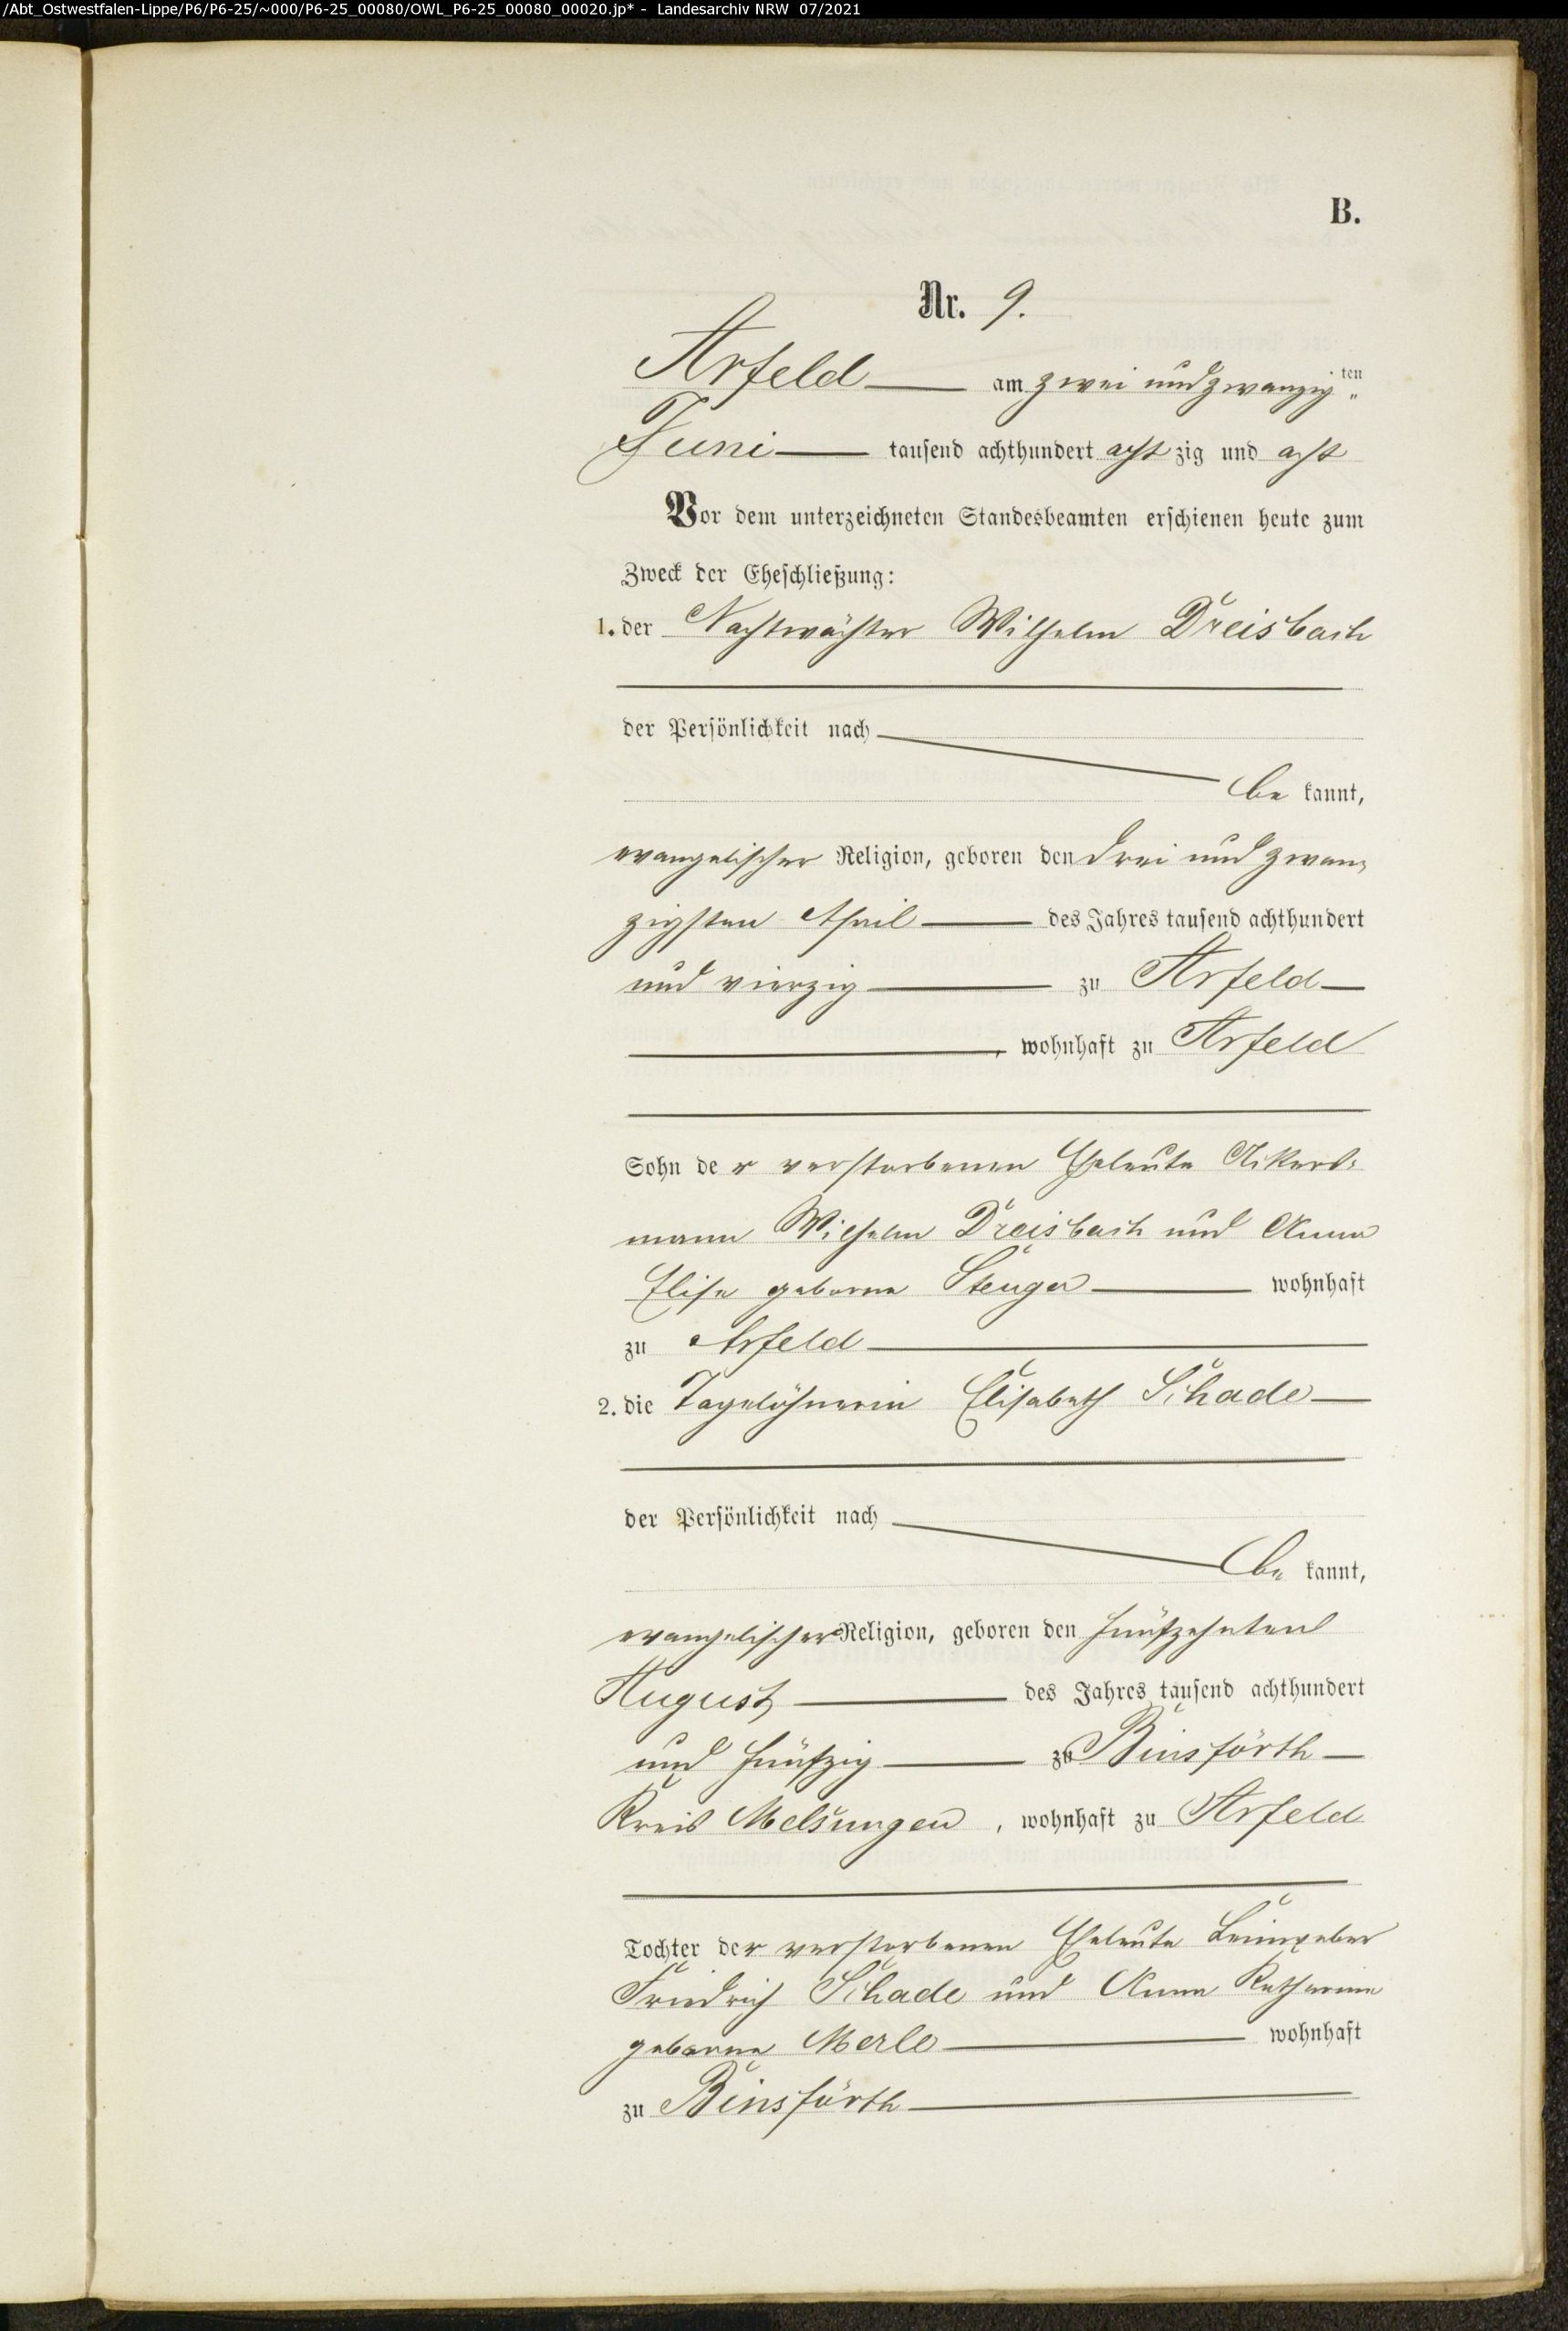 /Abt_Ostwestfalen-Lippe/P6/P6-25/~000/P6-25_00080/OWL_P6-25_00080_00020.jp* - Landesarchiv NRW 07/2021
B.
Nr. 9.
Arfeld am zwei und zwanzig ten
Juni tausend achthundert acht zig und acht
Vor dem unterzeichneten Standesbeamten erschienen heute zum
Zweck der Eheschließung:
1. der Nachtwächter Wilhelm Dreisbach
der Persönlichkeit nach
be kannt,
evangelischer Religion, geboren den drei und zwan
zigsten April des Jahres tausend achthundert
und vierzig zu Arfeld
, wohnhaft zu Arfeld
Sohn de r verstorbenen Eheleute Ackers-
mann Wilhelm Dreisbach und Anna
Elise geborne Stenger wohnhaft
zu Arfeld
2. die Tagelöhnerin Elisabeth Schade
der Persönlichkeit nach
be kannt,
evangelischer Religion, geboren den fünfzehnten
August des Jahres tausend achthundert
und fünfzig zu Binsförth
Kreis Melsungen, wohnhaft zu Arfeld
Tochter der verstorbenen Eheleute
Friedrich Schade und Anna Katharine
geborne Merle wohnhaft
zu Binsförth